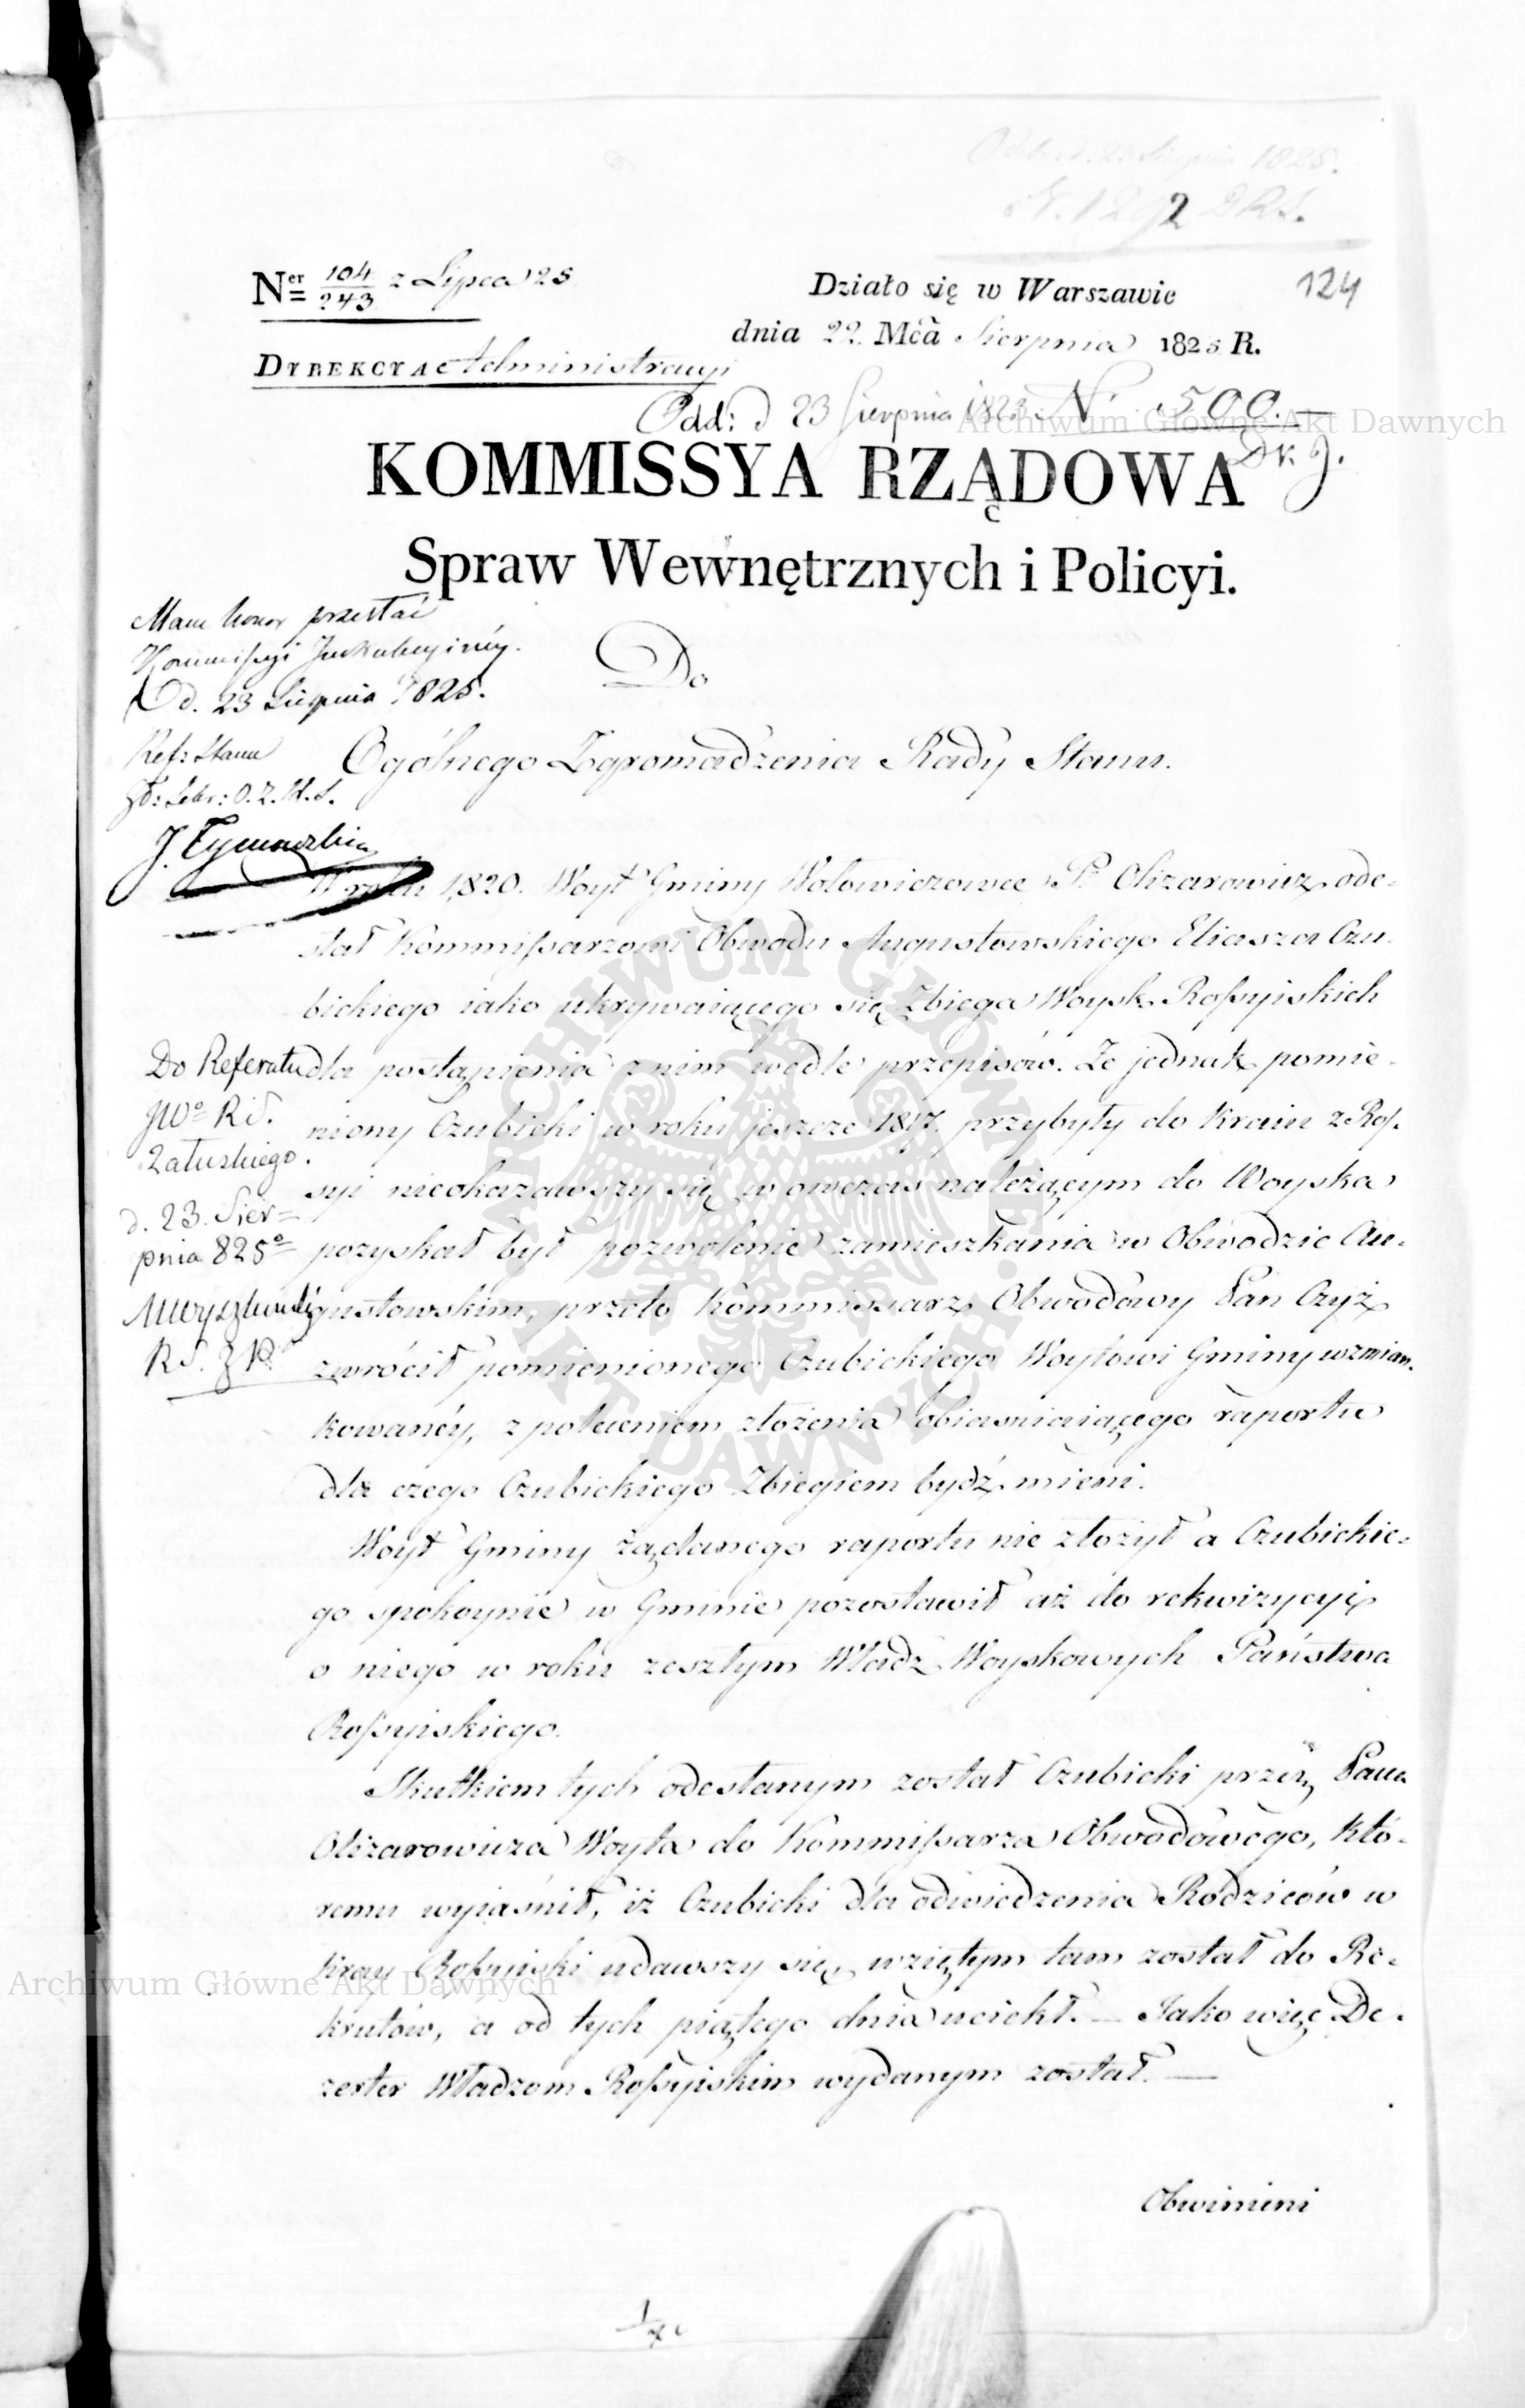 Odd. d. 20 Sierpnia 1825.
N. 1292 DRS.
Ner 104/243 z Lipca 25
Działo się w Warszawie
124
dnia 22. Mca Sierpnia 1825 R.
DYREKCYA Administracyi
Odd: d 23 Sierpnia 1825 N. 500.—
Archiwum Główne Akt Dawnych
KOMMISSYA RZĄDOWA
Spraw Wewnętrznych i Policyi.
Mam honor przesłać
Kommissyi
d. 23 Sierpnia 1825.
Do
Ref: Stanu
Ogólnego Zgromadzenia Rady Stanu.
W roku 1820. Woyt Gminy Wołowiczowce P. Olizarowicz ode-
słał Kommissarzowi Obwodu Augustowskiego Eliasza Czu-
bickiego iako ukrywaiącego się Zbiega Woysk Rossyiskich
dla postąpienia z nim wedle przepisów. Że jednak pomie-
niony Czubicki w roku jeszcze 1817. przybyły do Kraiu z Ros-
syi nieokazawszy się wowczas należącym do Woyska
pozyskał był pozwolenie zamieszkania w Obwodzie Au-
gustowskim, przeto Kommissarz Obwodowy Pan Czyż
zwrócił pomienionego Czubickiego Woytowi Gminy wzmian-
kowanéy, z poleceniem złożenia obiasniaiącego raportu
dla czego Czubickiego Zbiegiem bydź mieni.
Do Referatu
JWo R. S.
Załuskiego.
d. 23. Sier=
pnia 825o
RS.
Woyt Gminy żądanego raportu nie złożył a Czubickie-
go spokoynie w Gminie pozostawił aż do rekwizycyi
o niego w roku zeszłym Władz Woyskowych Państwa
Rossyiskiego.
Skutkiem tych odesłanym został Czubicki przez Pana
Olizarowicza Woyta do Kommissarza Obwodowego, któ-
remu wyiaśnił, iż Czubicki dla odwiedzenia Rodziców w
Kray Rossyiski udawszy się, wziętym tam został do Re-
krutów, a od tych piątego dnia uciekł.— Jako więc De-
zerter Władzom Rossyiskim wydanym został.—
Obwinieni
Archiwum Główne Akt Dawnych
ARCHIWUM GŁÓWNE AKT DAWNYCH